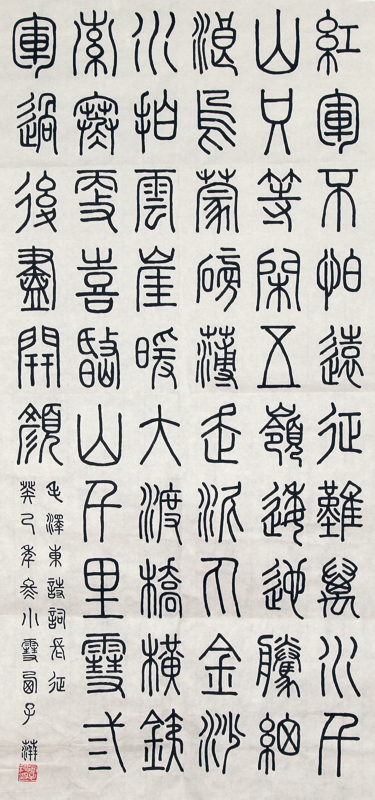 紅軍不怕遠征難萬水千
山只等閑五嶺逶迤騰細
浪烏蒙磅薄走泥丸金沙
水拍雲崖暖大渡橋橫鐵
索寒更喜岷山千里雪弎
軍過後盡開顏
毛澤東詩詞長征
癸巳年冬小雪